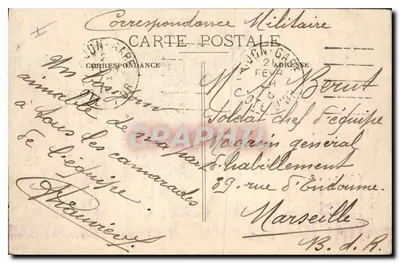 Correspondance Militaire
CARTE POSTALE
CORRESPONDANCE
ADRESSE
DIJON-GARE
DIJON-GARE
2
FEVR
CÔTE D'OR
Un bonjour
de ma part
à tous les camarades
de l'équipe
Mr Berut
Soldat chef d'équipe
Magasin général
d'habillement
89 rue d'Endoume
Marseille
B. d. R.
CPARAMA